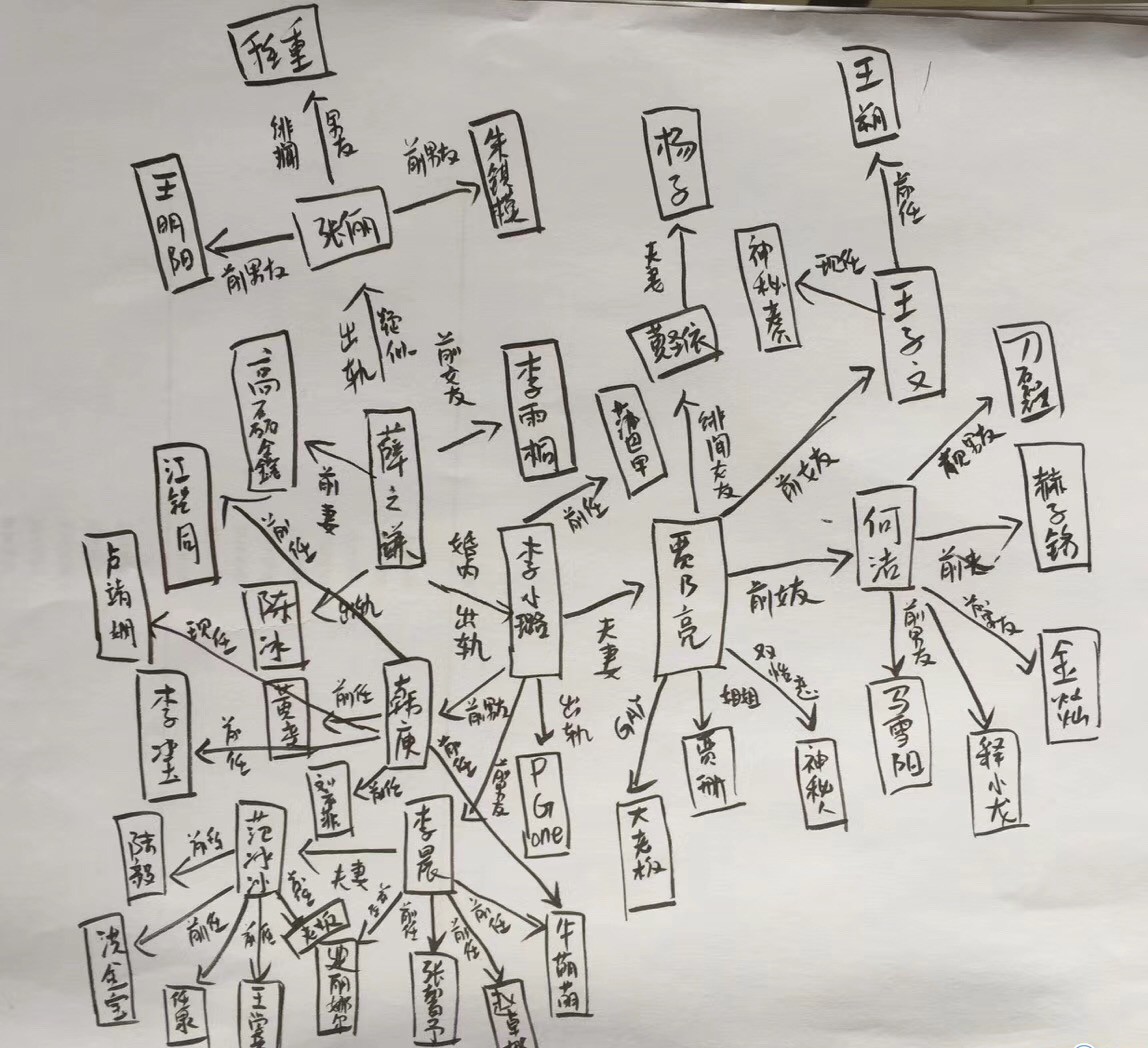 王朔
绯闻
男友
杨子
朱锁模
前男友
前任
王明阳
张俪
前男友
夫妻
神秘奏
现任
王子文
黄圣依
出轨
疑似
前女友
李雨桐
高磊鑫
薛之谦
前妻
蒲巴甲
绯闻女友
前女友
刀磊
前任
江铭同
前任
李小璐
贾乃亮
何洁
赫子铭
婚内
出轨
夫妻
前女友
前夫
卢靖姗
现任
陈冰
出轨
前男友
前男友
双性恋
姐姐
GAY
金灿
李
前任
黄
前任
韩庚
前男友
出轨
前任
前男友
PGone
贾册
神秘人
马雪阳
释小龙
刘亦菲
前任
大老板
陈毅
前任
范冰冰
夫妻
李晨
洪金宝
前任
前任
前任
前任
前任
前任
任泉
迪丽娜尔
张馨予
牛萌萌